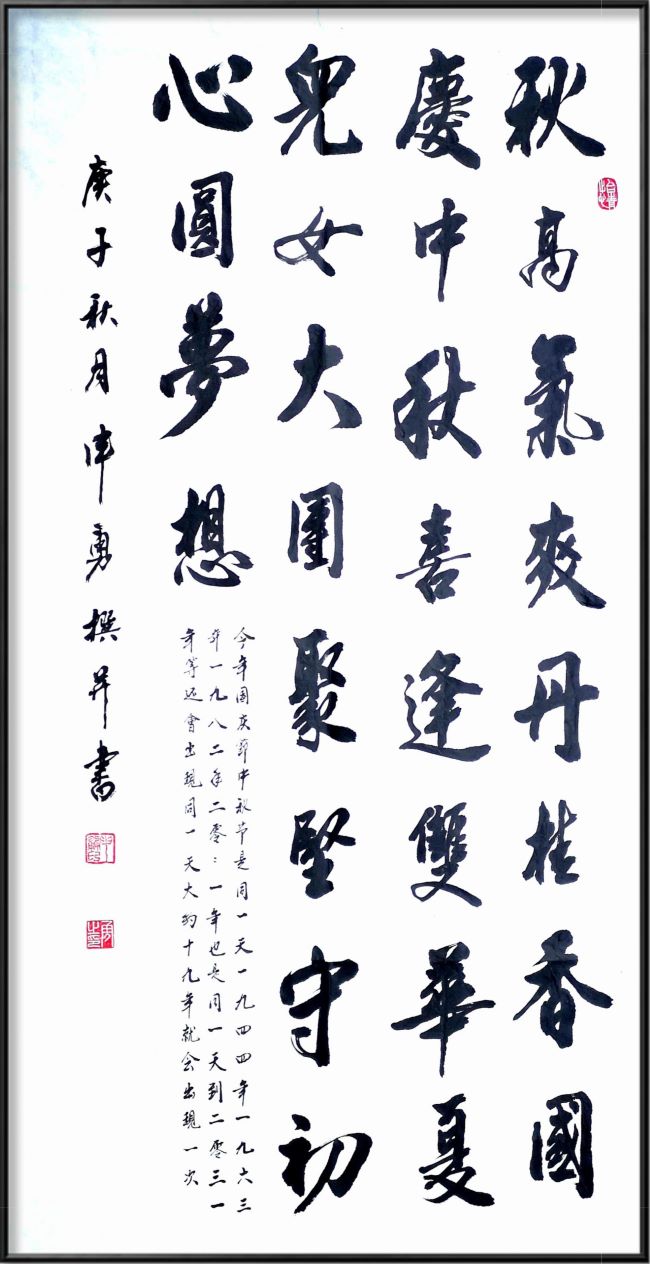 秋高氣爽丹桂香國
慶中秋喜逢雙華夏
兒女大團聚堅守初
心圓夢想
今年国庆節中秋节是同一天一九四四年一九六三
年一九八二年二零：一年也是同一天到二零三一
年等还會出現同一天大约十九年就会出現一次
庚子秋月勇撰并書